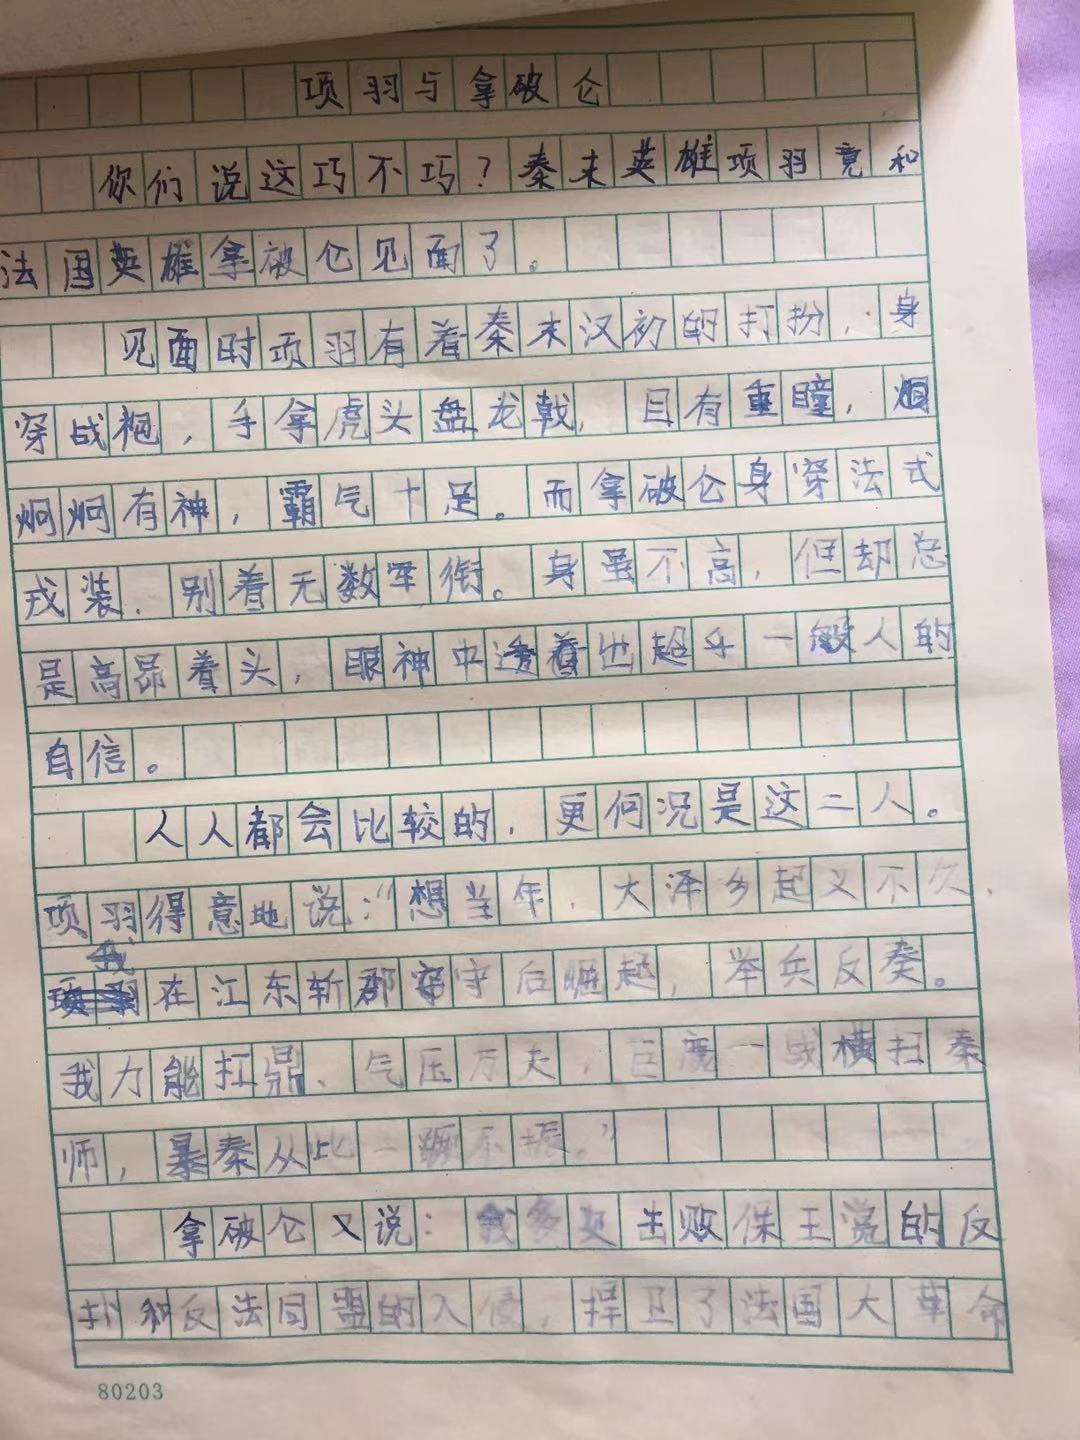 项羽与拿破仑
你们说这巧不巧？秦末英雄项羽竟和
法国英雄拿破仑见面了。
见面时项羽有着秦末汉初的打扮，身
穿战袍，手拿虎头盘龙戟，目有重瞳，炯
炯有神，霸气十足。而拿破仑身穿法式
戎装，别着无数军衔。身虽不高，但却总
是高昂着头，眼神中透着也超乎一般人的
自信。
人人都会比较的，更何况是这二人。
项羽得意地说：“想当年，大泽乡起义不久，
我在江东斩郡守后崛起，举兵反秦。
我力能扛鼎、气压万夫，巨鹿一战横扫秦
师，暴秦从此一蹶不振。”
拿破仑又说：我多次击败保王党的反
扑和反法同盟的入侵，捍卫了法国大革命
80203